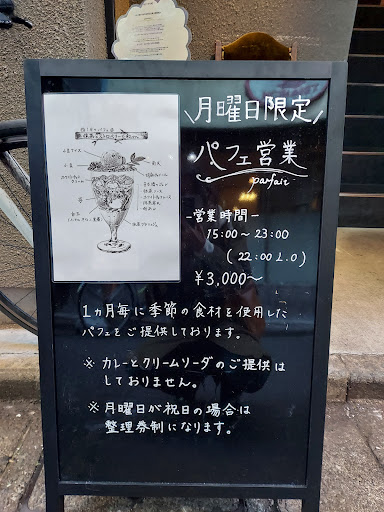 月曜日限定
パフェ営業
parfait
-営業時間-
15:00〜23:00
(22:00 L.O)
¥3,000〜
1ヵ月毎に季節の食材を使用した
パフェをご提供しております。
※ カレーとクリームソーダのご提供は
しておりません。
※ 月曜日が祝日の場合は
整理券制になります。